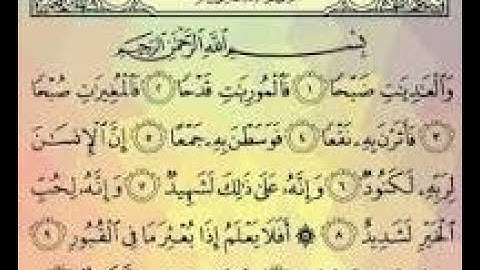 بِسْمِ ٱللَّهِ ٱلرَّحْمَٰنِ ٱلرَّحِيمِ
وَٱلْعَٰدِيَٰتِ ضَبْحًا ١ فَٱلْمُورِيَٰتِ قَدْحًا ٢ فَٱلْمُغِيرَٰتِ صُبْحًا
٣ فَأَثَرْنَ بِهِۦ نَقْعًا ٤ فَوَسَطْنَ بِهِۦ جَمْعًا ٥ إِنَّ ٱلْإِنسَٰنَ
لِرَبِّهِۦ لَكَنُودٌ ٦ وَإِنَّهُۥ عَلَىٰ ذَٰلِكَ لَشَهِيدٌ ٧ وَإِنَّهُۥ لِحُبِّ
ٱلْخَيْرِ لَشَدِيدٌ ٨ ۞ أَفَلَا يَعْلَمُ إِذَا بُعْثِرَ مَا فِى ٱلْقُبُورِ ٩